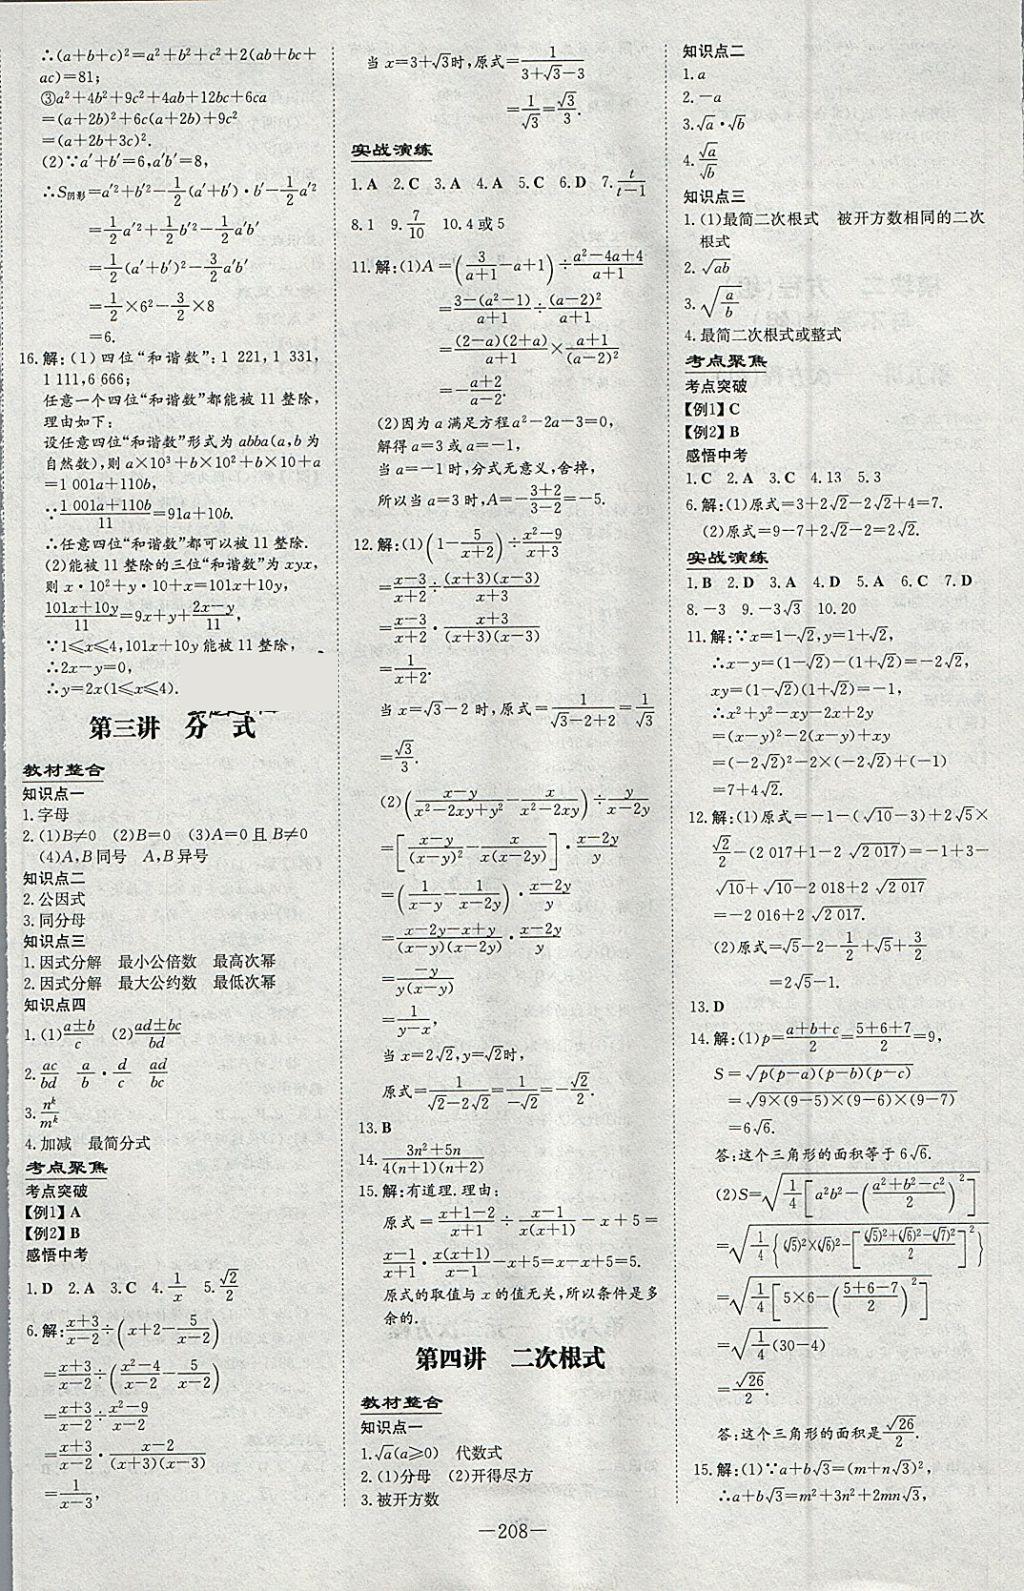 ∴(a+b+c)²=a²+b²+c²+2(ab+bc+
ac)=81;
③a²+4b²+9c²+4ab+12bc+6ca
=(a+2b)²+6c(a+2b)+9c²
=(a+2b+3c)².
(2)∵a′+b′=6,a′b′=8,
∴S阴影=a′²+b′²-1/2(a′+b′)·b′-1/2a′²
=1/2a′²+1/2b′²-1/2a′b′
=1/2(a′+b′)²-3/2a′b′
=1/2×6²-3/2×8
=6.
16.解:(1)四位“和谐数”:1 221,1 331,
1 111,6 666;
任意一个四位“和谐数”都能被11整除,
理由如下:
设任意四位“和谐数”形式为abba(a,b为
自然数),则a×10³+b×10²+b×10+a
=1 001a+110b,
∵(1 001a+110b)/11=91a+10b.
∴任意四位“和谐数”都可以被11整除.
(2)能被11整除的三位“和谐数”为xyx,
则x·10²+y·10+x=101x+10y,
(101x+10y)/11=9x+y+(2x-y)/11,
∵1≤x≤4,101x+10y能被11整除,
∴2x-y=0,
∴y=2x(1≤x≤4).
第三讲 分 式
教材整合
知识点一
1.字母
2.(1)B≠0 (2)B=0 (3)A=0且B≠0
(4)A,B同号 A,B异号
知识点二
2.公因式
3.同分母
知识点三
1.因式分解 最小公倍数 最高次幂
2.因式分解 最大公约数 最低次幂
知识点四
1.(1)(a±b)/c (2)(ad±bc)/bd
2.ac/bd a/b·d/c ad/bc
3.nᵏ/mᵏ
4.加减 最简分式
考点聚焦
考点突破
【例1】A
【例2】B
感悟中考
1.D 2.A 3.C 4.1/x 5.√2/2
6.解:(x+3)/(x-2)÷(x+2-5/(x-2))
=(x+3)/(x-2)÷((x²-4)/(x-2)-5/(x-2))
=(x+3)/(x-2)÷(x²-9)/(x-2)
=(x+3)/(x-2)·(x-2)/((x+3)(x-3))
=1/(x-3),
当x=3+√3时,原式=1/(3+√3-3)
=1/√3=√3/3.
实战演练
1.A 2.C 3.A 4.A 5.C 6.D 7.t/(t-1)
8.1 9.7/10 10.4或5
11.解:(1)A=(3/(a+1)-a+1)÷(a²-4a+4)/(a+1)
=(3-(a²-1))/(a+1)÷(a-2)²/(a+1)
=(2-a)(2+a)/(a+1)×(a+1)/(a-2)²
=-(a+2)/(a-2).
(2)因为a满足方程a²-2a-3=0,
解得a=3或a=-1,
当a=-1时,分式无意义,舍掉,
所以当a=3时,A=-(3+2)/(3-2)=-5.
12.解:(1)(1-5/(x+2))÷(x²-9)/(x+3)
=(x-3)/(x+2)÷(x+3)(x-3)/(x+3)
=(x-3)/(x+2)·(x+3)/((x+3)(x-3))
=1/(x+2).
当x=√3-2时,原式=1/(√3-2+2)=1/√3
=√3/3.
(2)((x-y)/(x²-2xy+y²)-x/(x²-2xy))÷y/(x-2y)
=[(x-y)/(x-y)²-x/(x(x-2y))]·(x-2y)/y
=(1/(x-y)-1/(x-2y))·(x-2y)/y
=(x-2y-x+y)/((x-y)(x-2y))·(x-2y)/y
=-y/(y(x-y))
=1/(y-x),
当x=2√2,y=√2时,
原式=1/(√2-2√2)=1/-√2=-√2/2.
13.B
14.(3n²+5n)/(4(n+1)(n+2))
15.解:有道理.理由:
原式=(x+1-2)/(x+1)÷(x-1)/(x(x+1))-x+5=
(x-1)/(x+1)·x(x+1)/(x-1)-x+5=x-x+5=5.
原式的取值与x的值无关,所以条件是多
余的.
第四讲 二次根式
教材整合
知识点一
1.√a(a≥0) 代数式
2.(1)分母 (2)开得尽方
3.被开方数
知识点二
1.a
2.-a
3.√a·√b
4.√a/√b
知识点三
1.(1)最简二次根式 被开方数相同的二次
根式
2.√ab
3.√(a/b)
4.最简二次根式或整式
考点聚焦
考点突破
【例1】C
【例2】B
感悟中考
1.C 2.A 3.C 4.13 5.3
6.解:(1)原式=3+2√2-2√2+4=7.
(2)原式=9-7+2√2-2=2√2.
实战演练
1.B 2.D 3.A 4.D 5.A 6.C 7.D
8.-3 9.-3√3 10.20
11.解:∵x=1-√2,y=1+√2,
∴x-y=(1-√2)-(1+√2)=-2√2,
xy=(1-√2)(1+√2)=-1,
∴x²+y²-xy-2x+2y
=(x-y)²-2(x-y)+xy
=(-2√2)²-2×(-2√2)+(-1)
=7+4√2.
12.解:(1)原式=-1-(√10-3)+2√5×
√2/2-(2 017+1-2√2 017)=-1+3-
√10+√10-2 018+2√2 017
=-2 016+2√2 017.
(2)原式=√5-2-1/2+√5+3/2
=2√5-1.
13.D
14.解:(1)p=(a+b+c)/2=(5+6+7)/2=9,
S=√(p(p-a)(p-b)(p-c))
=√(9×(9-5)×(9-6)×(9-7))
=6√6.
答:这个三角形的面积等于6√6.
(2)S=√(1/4[a²b²-((a²+b²-c²)/2)²])
=√(1/4{(√5)²×(√6)²-[((√5)²+(√6)²-(√7)²)/2]²})
=√(1/4[5×6-((5+6-7)/2)²])
=√(1/4(30-4))
=√26/2.
答:这个三角形的面积是√26/2.
15.解:(1)∵a+b√3=(m+n√3)²,
∴a+b√3=m²+3n²+2mn√3,
—208—